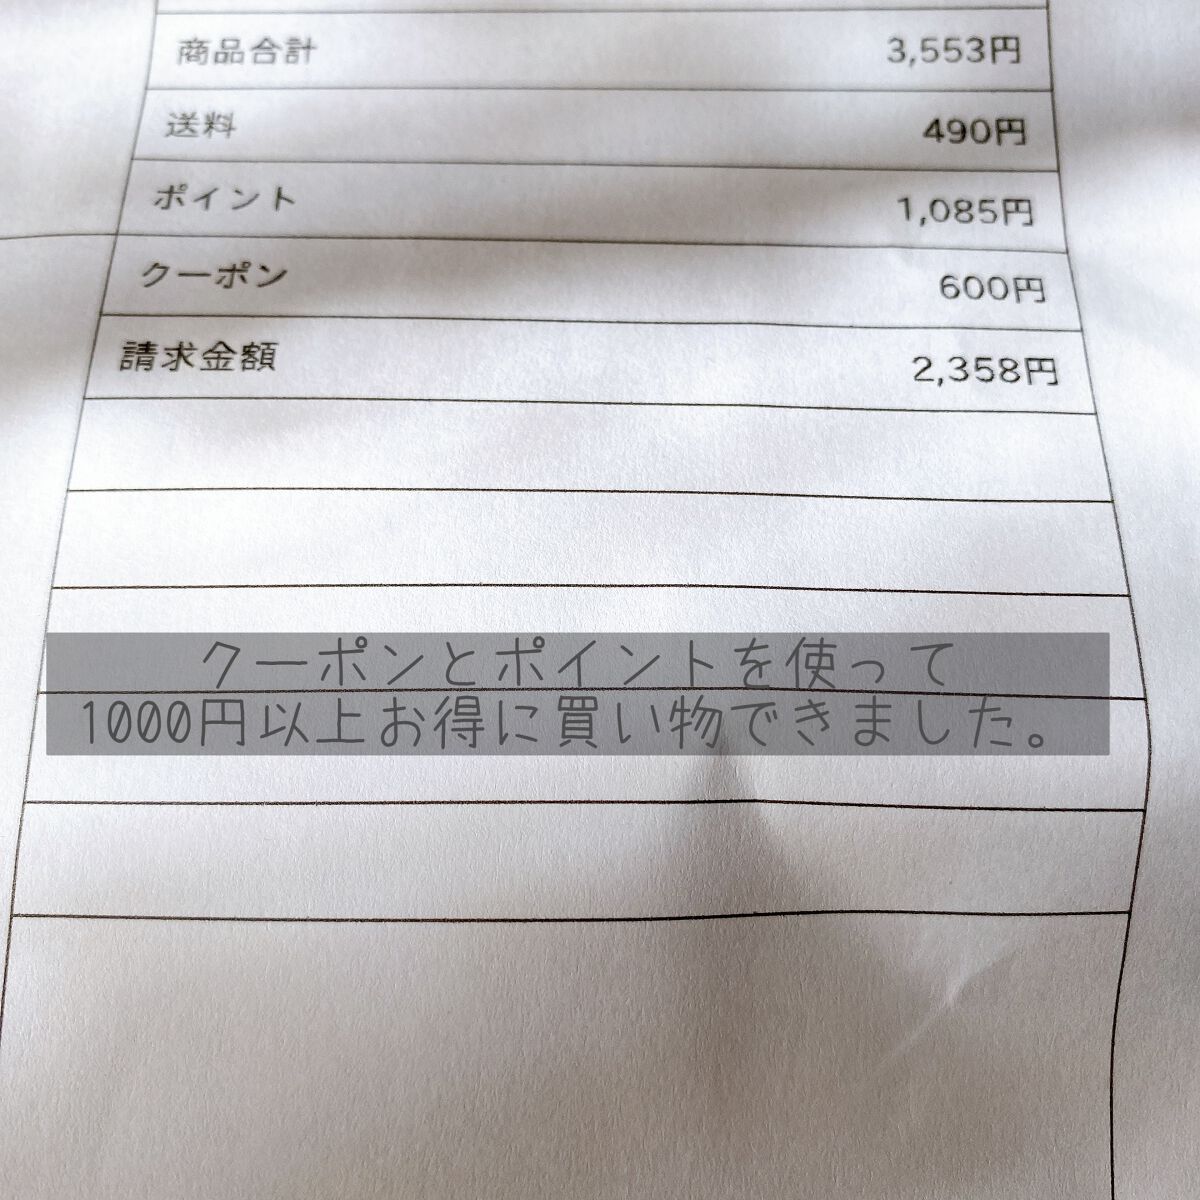 商品合計 3,553円
送料 490円
ポイント 1,085円
クーポン 600円
請求金額 2,358円
クーポンとポイントを使って
1000円以上お得に買い物できました。